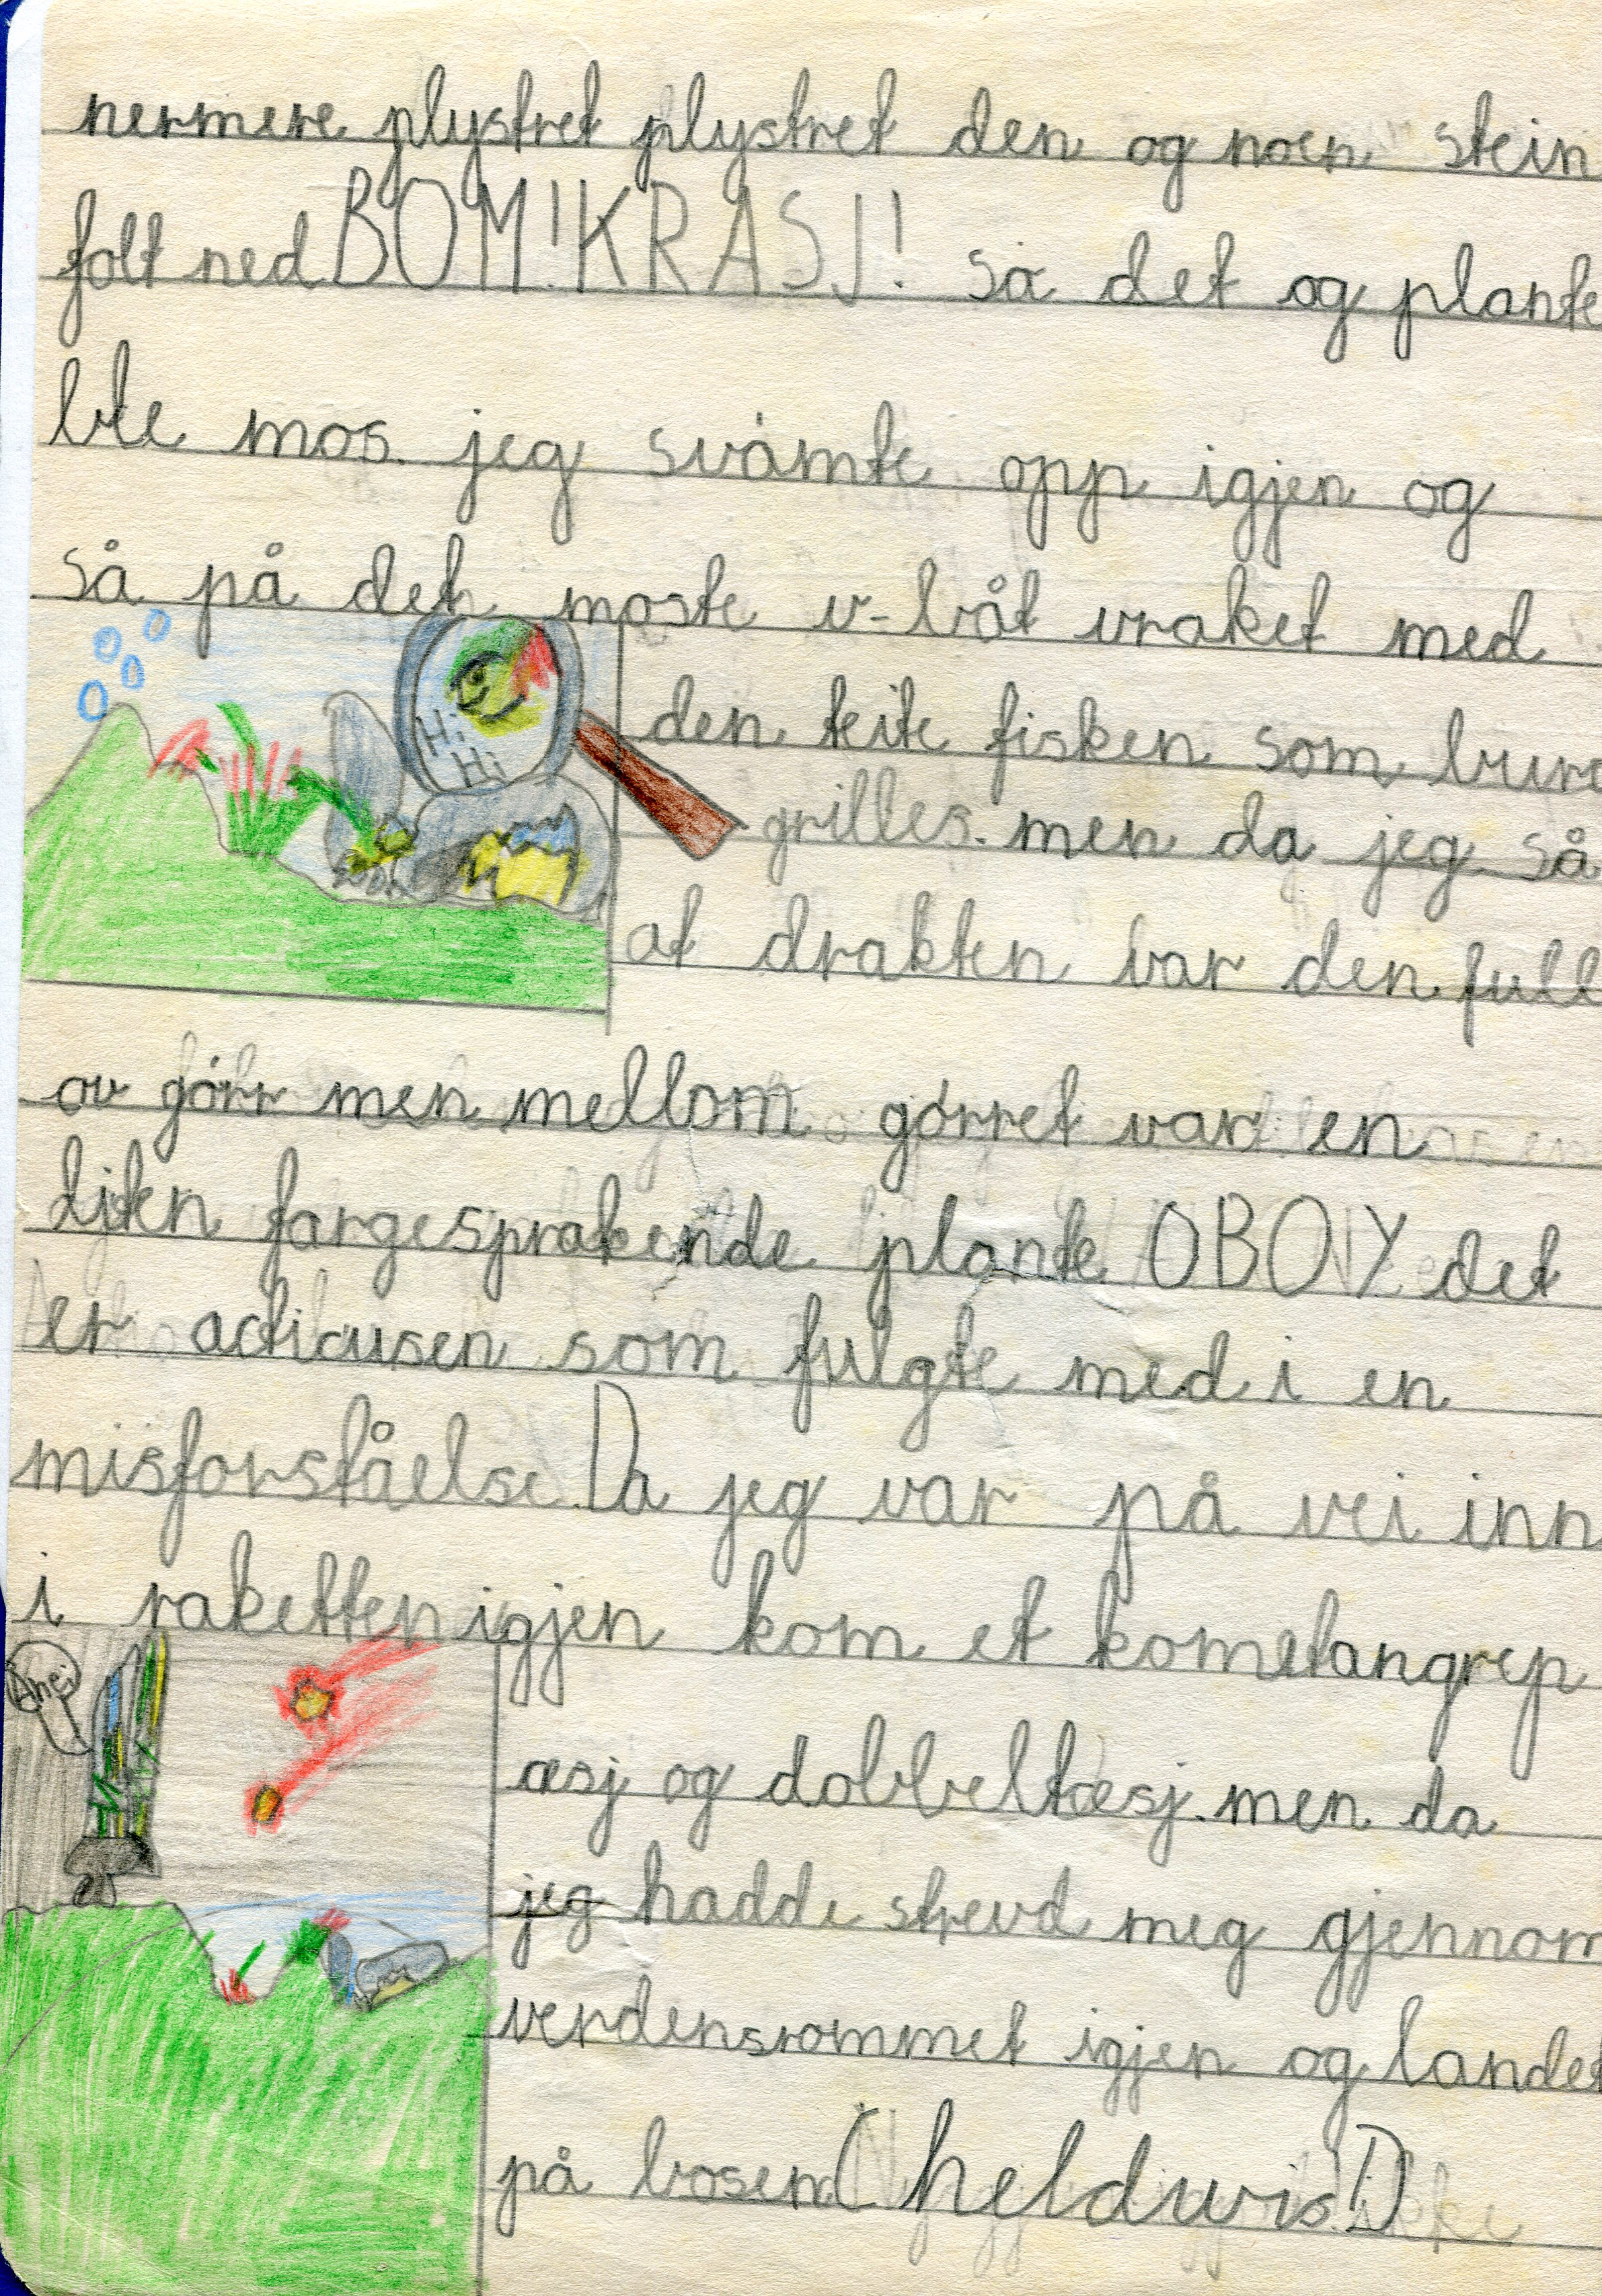 nermere plystret plystret den og noen stein
falt ned BOM! KRASJ! sa det og plante
ble mos. jeg svømte opp igjen og
så på det moste u-båt vraket med
Hi
Hi
den teite fisken som burde
grilles. men da jeg så
at drakten var den full
av gørr men mellom gørret var en
liten fargesprakende plante OBOY det
er som fulgte med i en
misforståelse. Da jeg var på vei inn
i raketten igjen kom et kometangrep
Ånei
æsj og dobbeltæsj. men da
jeg hadde strevd meg gjennom
verdensrommet igjen og landet
på basen (heldivis!)